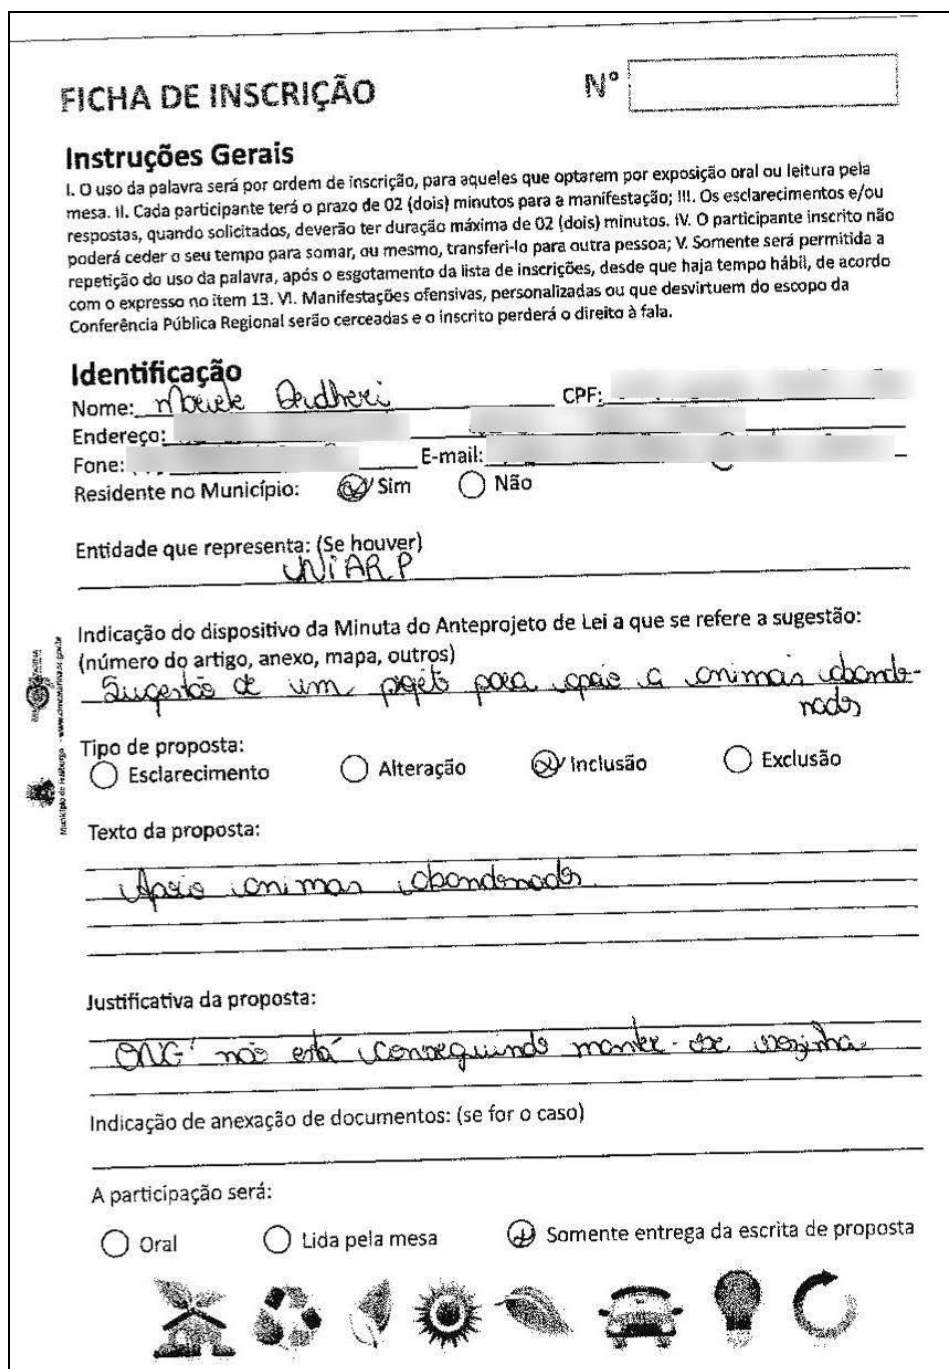 FICHA DE INSCRIÇÃO
Nº
Instruções Gerais
I. O uso da palavra será por ordem de inscrição, para aqueles que optarem por exposição oral ou leitura pela
mesa. II. Cada participante terá o prazo de 02 (dois) minutos para a manifestação; III. Os esclarecimentos e/ou
respostas, quando solicitados, deverão ter duração máxima de 02 (dois) minutos. IV. O participante inscrito não
poderá ceder o seu tempo para somar, ou mesmo, transferi-lo para outra pessoa; V. Somente será permitida a
repetição do uso da palavra, após o esgotamento da lista de inscrições, desde que haja tempo hábil, de acordo
com o expresso no item 13. VI. Manifestações ofensivas, personalizadas ou que desvirtuem do escopo da
Conferência Pública Regional serão cerceadas e o inscrito perderá o direito à fala.
Identificação
Nome: CPF:
Endereço:
Fone: E-mail:
Residente no Município: Sim Não
Entidade que representa: (Se houver)
UNIARP
Indicação do dispositivo da Minuta do Anteprojeto de Lei a que se refere a sugestão:
(número do artigo, anexo, mapa, outros)
Sugestão de um pojeto para apoio a animais abando-
nados
Tipo de proposta:
Esclarecimento Alteração Inclusão Exclusão
Texto da proposta:
Apoio animais abandonados
Justificativa da proposta:
ONG não está conseguindo manter-se sozinha
Indicação de anexação de documentos: (se for o caso)
A participação será:
Oral Lida pela mesa Somente entrega da escrita de proposta